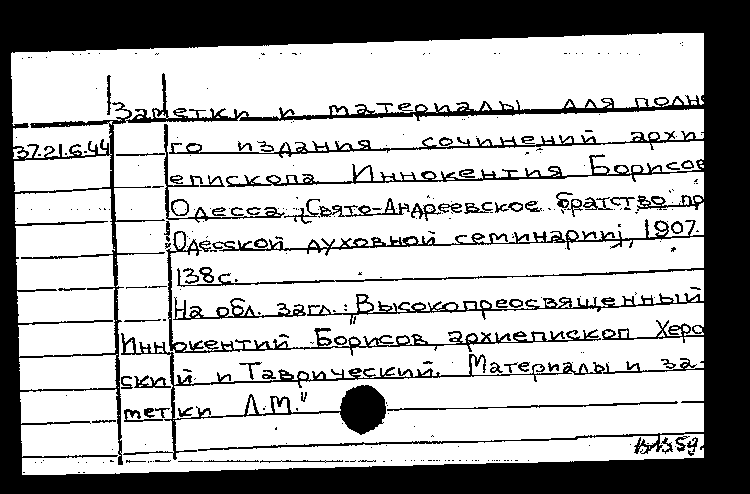 Заметки и материалы для полн
37.21.6.44 го издания сочинений архи-
епископа Иннокентия Борисов
Одесса, „Свято-Андреевское братство пр
Одесской духовной семинарии", 1907.
138с.
На обл. загл.: „Высокопреосвященный
Иннокентий Борисов, архиепископ Херо
ский и Таврический. Материалы и за-
метки Л.М."